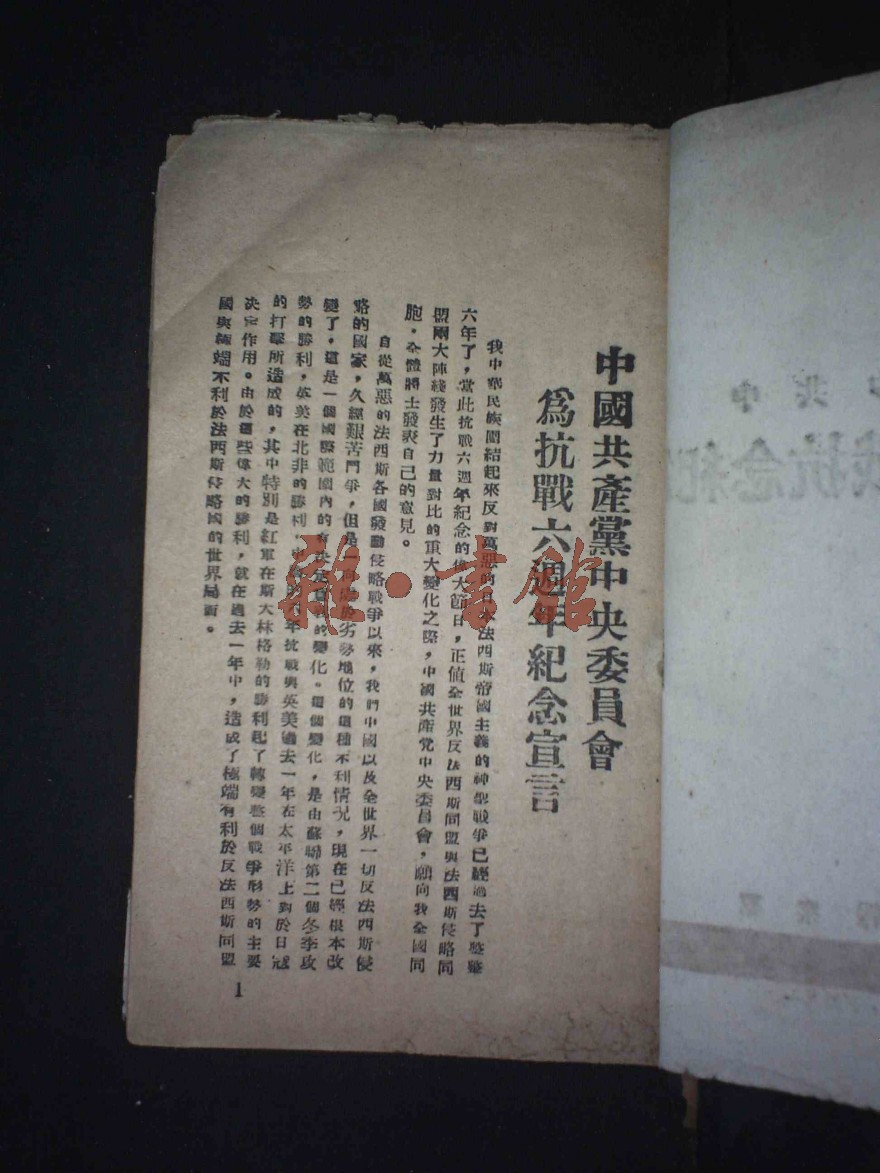 中國共產黨中央委員會
爲抗戰六週年紀念宣言
我中華民族團結起來反對萬惡的日本法西斯帝國主義的神聖戰爭已經過去了整整
六年了,當此抗戰六週年紀念的偉大節日,正值全世界反法西斯同盟與法西斯侵略同
盟兩大陣綫發生了力量對比的重大變化之際,中國共產党中央委員會,願向我全國同
胞,全體將士發表自己的意見。
自從萬惡的法西斯各國發動侵略戰爭以來,我們中國以及全世界一切反法西斯侵
略的國家,久經艱苦鬥爭,但是一向處於劣勢地位的這種不利情况,現在已經根本改
變了,這是一個國際範圍內的有決定意義的變化。這個變化,是由蘇聯第二個冬季攻
勢的勝利,英美在北非的勝利,中國的六年抗戰與英美過去一年在太平洋上對於日寇
的打擊所造成的,其中特別是紅軍在斯大林格勒的勝利起了轉變整個戰爭形勢的主要
决定作用。由於這些偉大的勝利,就在過去一年中,造成了極端有利於反法西斯同盟
國與極端不利於法西斯侵略國的世界局面。
1
雜·書館